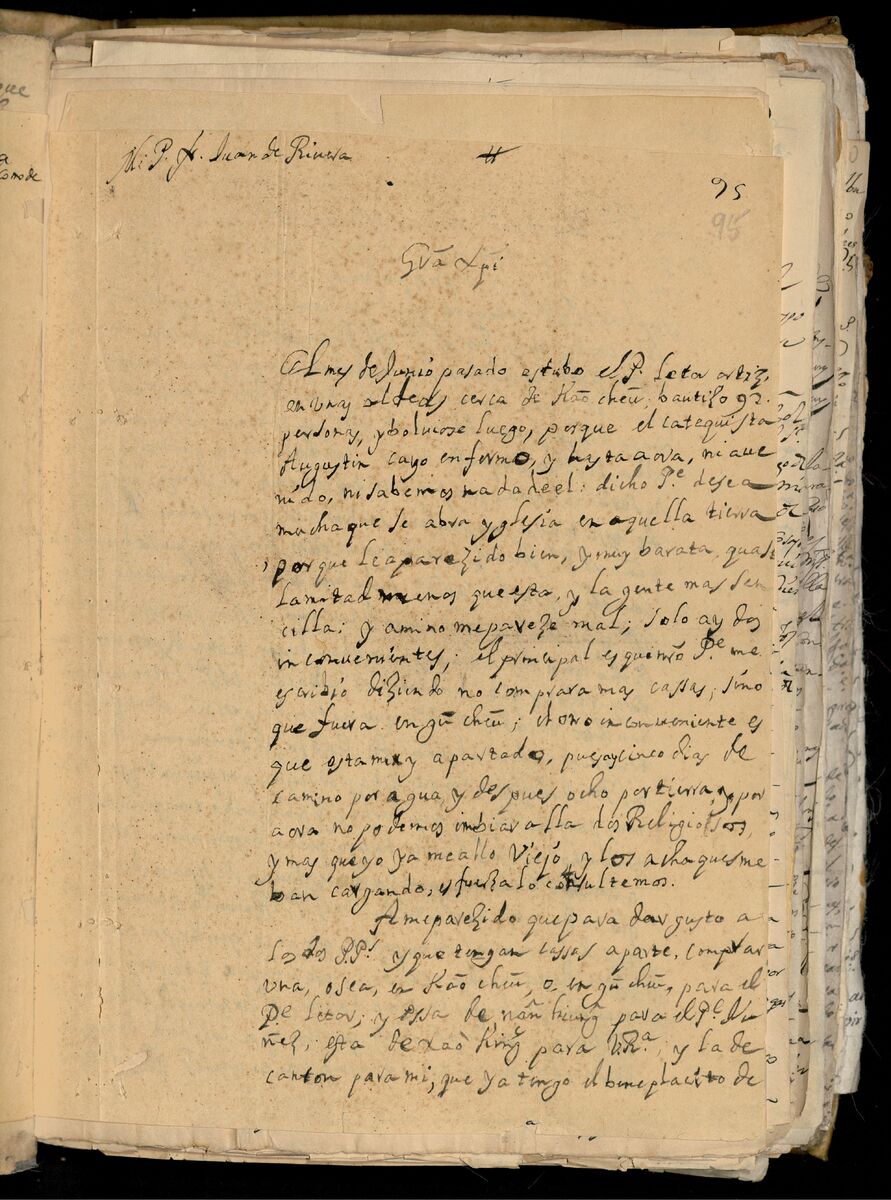 Mi P. fr. Juan de Rivera
95
95
Gra Xpi
El mes de Junio pasado estubo el P. Letor ortiz,
en unas aldeas cerca de Kāo cheū, bautizo 92.
personas, y bolviose luego, porque el catequista
Augustin cayo enfermo, y hasta aora, ni a ve
nido, ni sabemos nada de el: dicho Pe. desea
mucho que se abra yglesia en aquella tierra
porque le a parezido bien, y muy barata, quasi
la mitad menos que esta, y la gente mas sen
cilla: y a mi no me pareze mal; solo ay dos
inconvenientes, el principal es que nro Pe. me
escribio diziendo no comprara mas cassas, sino
que fuera en gū cheū; el otro inconveniente es
que esta muy apartado, pues ay cinco dias de
camino por agua, y despues ocho por tierra, y por
aora no podemos imbiar alla dos Religiosos,
y mas que yo ya me allo viejo, y los achaques me
ban cargando, es fuerza lo consultemos.
A me parezido que para dar gusto a
los dos PPs. y que tengan cassas aparte, comprar
una, o sea, en Kāo cheū, o en gū cheū, para el
Pe. letor; y essa de nān hiung para el Pe. Nu
ñez, esta de xāo King para V.Ra. y la de
canton para mi, que ya tengo el beneplacito de